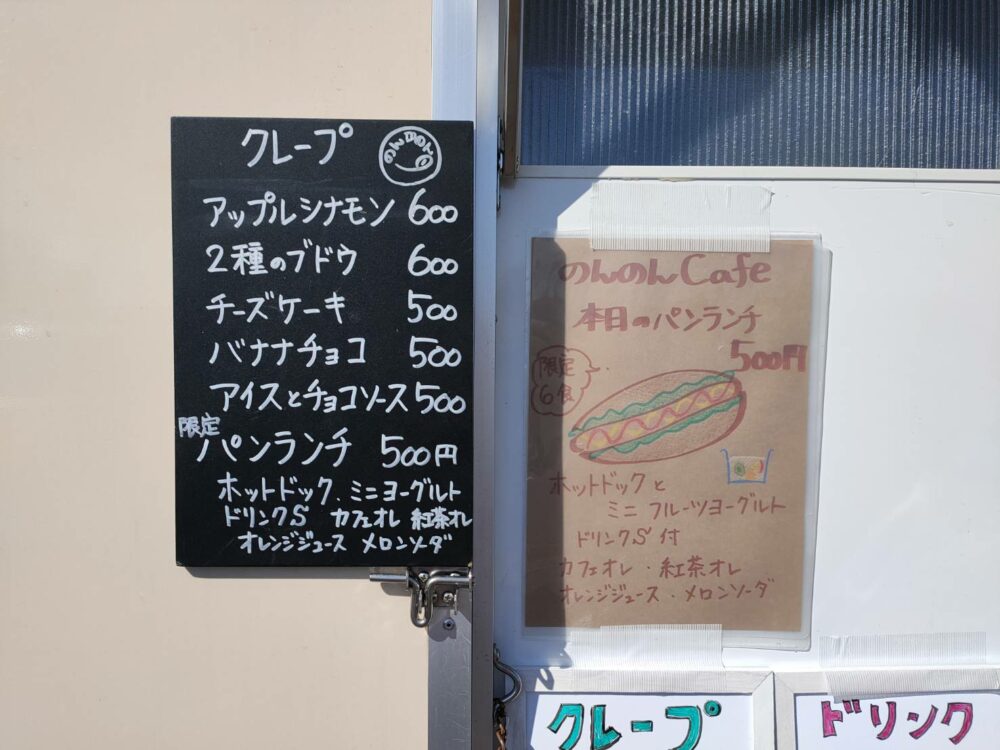 クレープ
のんのん
アップルシナモン 600
2種のブドウ 600
チーズケーキ 500
バナナチョコ 500
アイスとチョコソース 500
限定
パンランチ 500円
ホットドック、ミニヨーグルト
ドリンクS カフェオレ 紅茶オレ
オレンジジュース メロンソーダ
のんのんCafe
本日のパンランチ
500円
限定
6食
ホットドックと
ミニフルーツヨーグルト
ドリンクS付
カフェオレ・紅茶オレ
オレンジジュース・メロンソーダ
クレープ
ドリンク